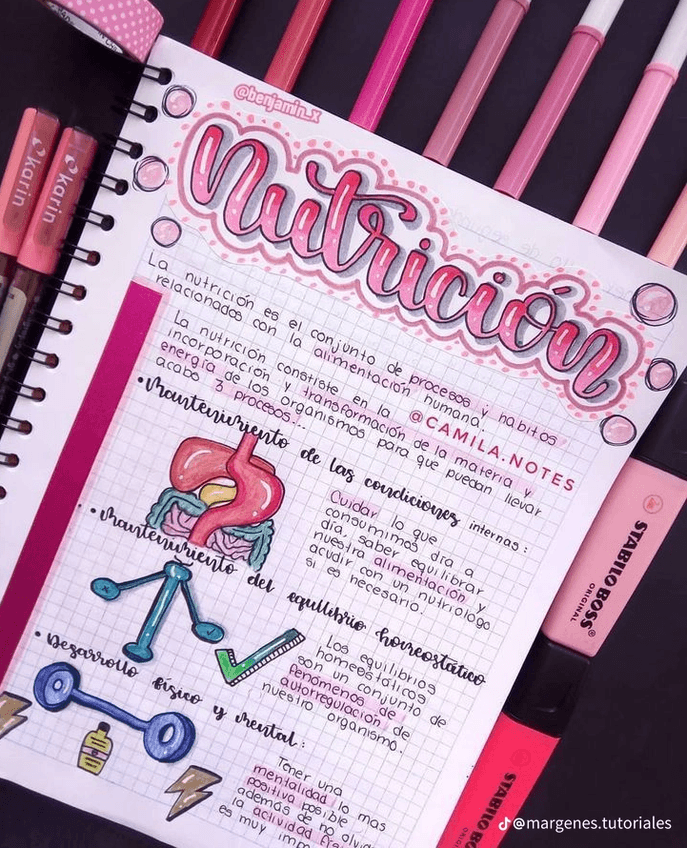 @benjamin_x
nutrición
La nutrición es el conjunto de procesos y habitos
relacionados con la alimentación humana.
La nutrición constiste en la
@CAMILA.NOTES
incorporación y transformación de la materia y
energía de los organismos para que puedan llevar
acabo 3 procesos...
•Mantenimiento de las condiciones internas:
Cuidar lo que
consumimos día a
día, saber equilibrar
nuestra alimentación y
acudir con un nutriologo
si es necesario.
•Mantenimiento del equilibrio homeostático
Los equilibrios
homeostáticos
son un conjunto de
fenómenos de
autorregulación de
nuestro organismo.
•Desarrollo físico y mental:
Tener una
mentalidad lo mas
positiva posible
además de no
la actividad
es muy
karin
karin
STABILO BOSS
ORIGINAL
STABILO BOSS
@margenes.tutoriales